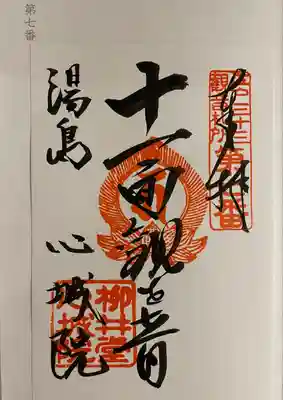 奉拝
江戸三十三
観音札所第七番
十一面觀世音
湯島 心城院
柳井堂
心城院
第七番